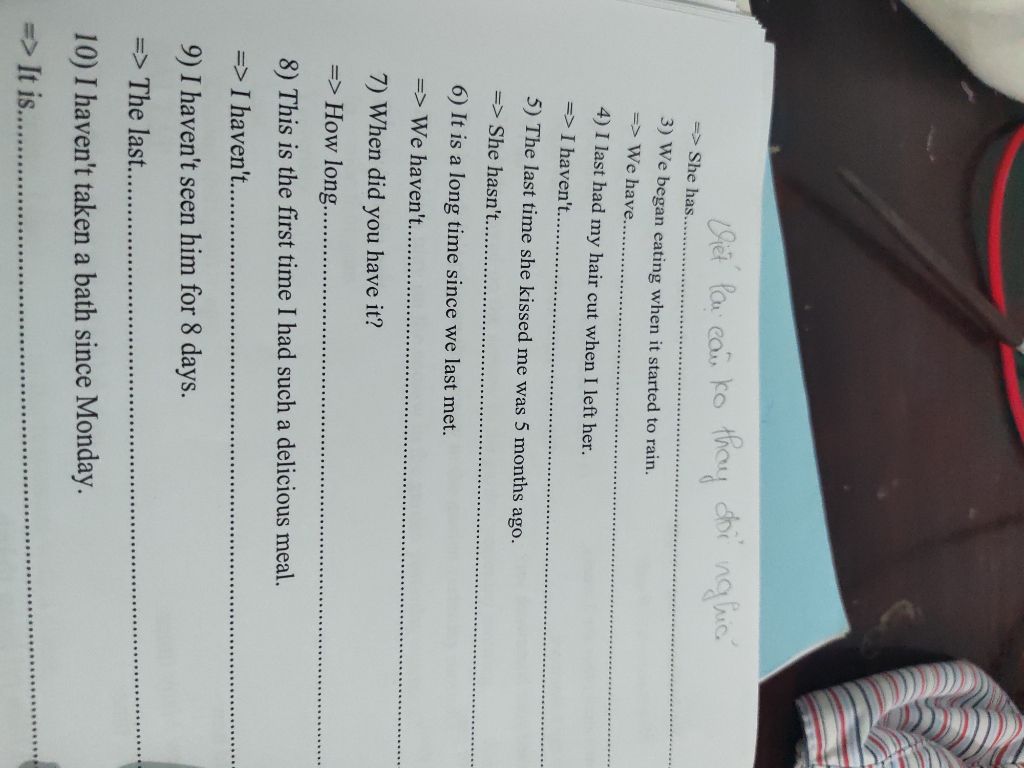 Viết lại câu ko thay đổi nghĩa
=> She has................................................
3) We began eating when it started to rain.
=> We have................................................
4) I last had my hair cut when I left her.
=> I haven't................................................
5) The last time she kissed me was 5 months ago.
=> She hasn't................................................
6) It is a long time since we last met.
=> We haven't................................................
7) When did you have it?
=> How long................................................
8) This is the first time I had such a delicious meal.
=> I haven't................................................
9) I haven't seen him for 8 days.
=> The last................................................
10) I haven't taken a bath since Monday.
=> It is................................................